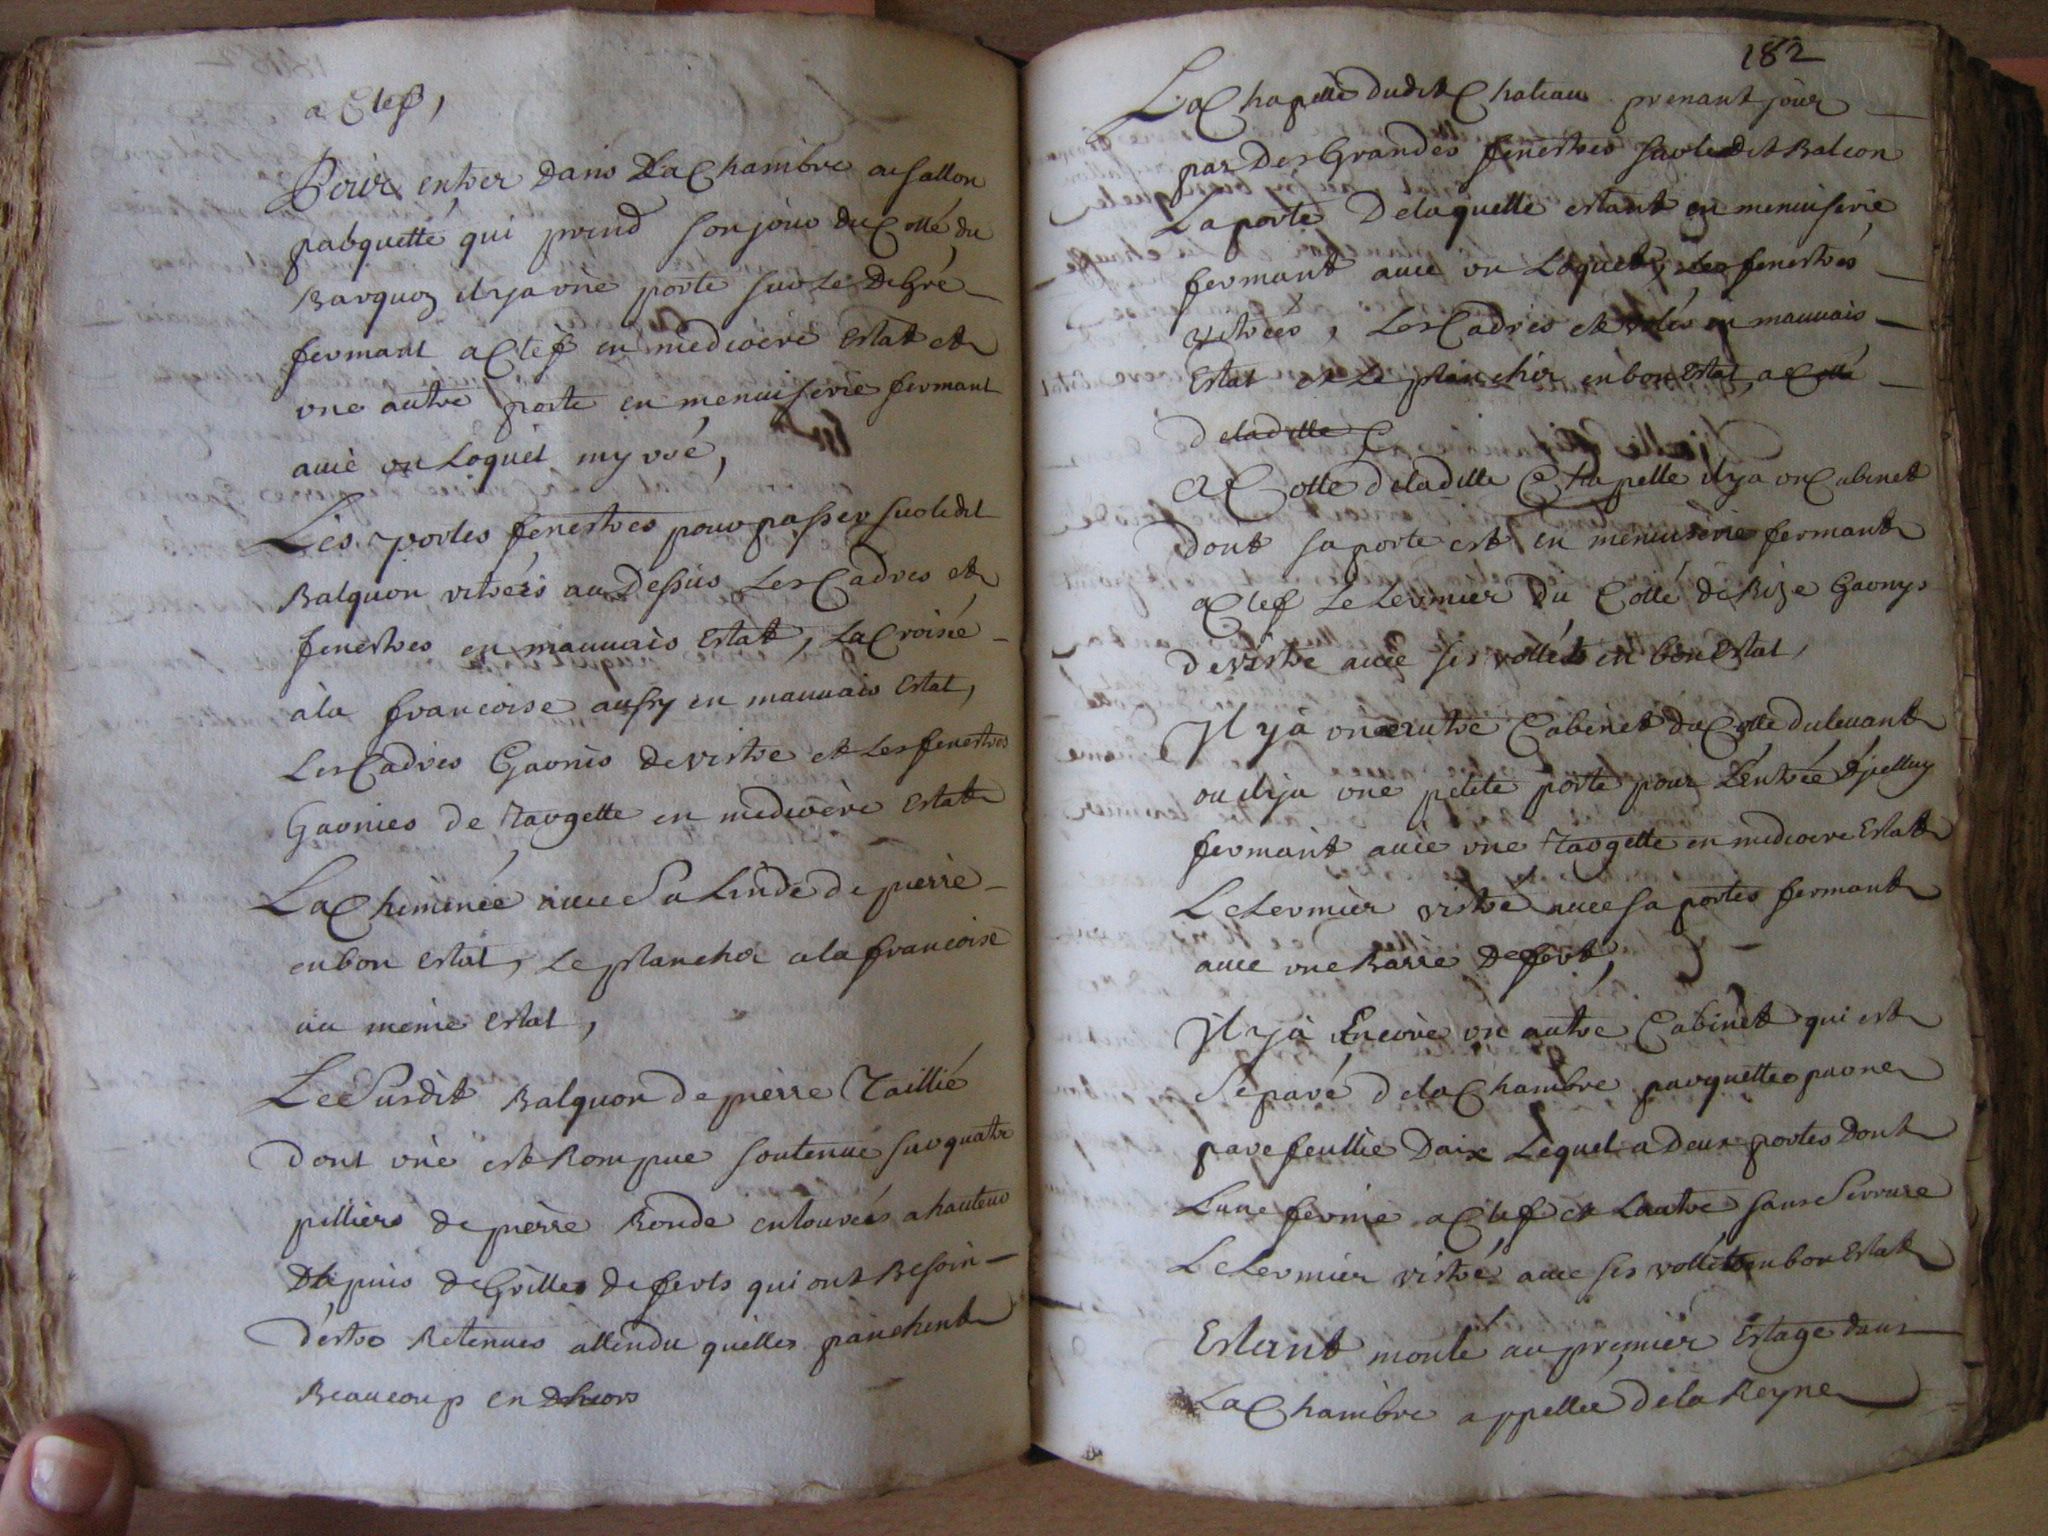 a Clef,
Pour entrer dans La Chambre ou sallon
parquetté qui prend son jour du Cotté du
Barquoz il y a une porte sur Le Degré
fermant a Clef en mediocre Estat et
une autre porte en menuiserie fermant
avec un Loquet my usé,
Les portes fenestres pour passer sur ledit
Balquon vitrées au Dessus Les Cadres et
fenestres en mauvais Estat, La Croisée
à la francoise aussy en mauvais Estat,
Les Cadres Garnis de vistre et Les fenestres
Garnies de Targette en mediocre Estat
La Cheminée avec Sa Linde de pierre
en bon estat, Le plancher a la francoise
au meme estat,
Le Surdit Balquon de pierre Taillié
dont une est Rompue soutenue sur quatre
pilliers de pierre Ronde entourées a hauteur
D'apuis de Grilles de ferts qui ont Besoin
d'estre Retenues attendu quelles panchent
Beaucoup en Dehors
182
La Chapelle dudit Chateau prenant jour
par Des Grandes fenestres sur le dit Balcon
La porte De laquelle estant en menuiserie
fermant avec un Loquet, Les fenestres
vitrées, Les Cadres et volés en mauvais
Estat et Le plancher en bon Estat, a Cotté
de ladite C
A Cotté de ladite Chapelle il y a un Cabinet
dont sa porte est en menuiserie fermant
a Clef Le Lermier Du Cotté de Bize Garnys
de vistre avec ses vollets en bon Estat,
Il y à un autre Cabinet du Cotté du levant
ou il y a une petite porte pour L'entrée d'jcelluy
fermant avec une Targette en mediocre Estat
Le Lermier vistré avec sa portes fermant
avec une Barre De fert,
Il y à Encore un autre Cabinet qui est
Separé de la Chambre parquettee par une
pare feullie Daix Lequel a deux portes Dont
L'une ferme a Clef et L'autre sans Serrure
Le Lermier vistré avec ses vollets en bon Estat
Estant monté au premier Estage dans
La Chambre appellée de la Reyne